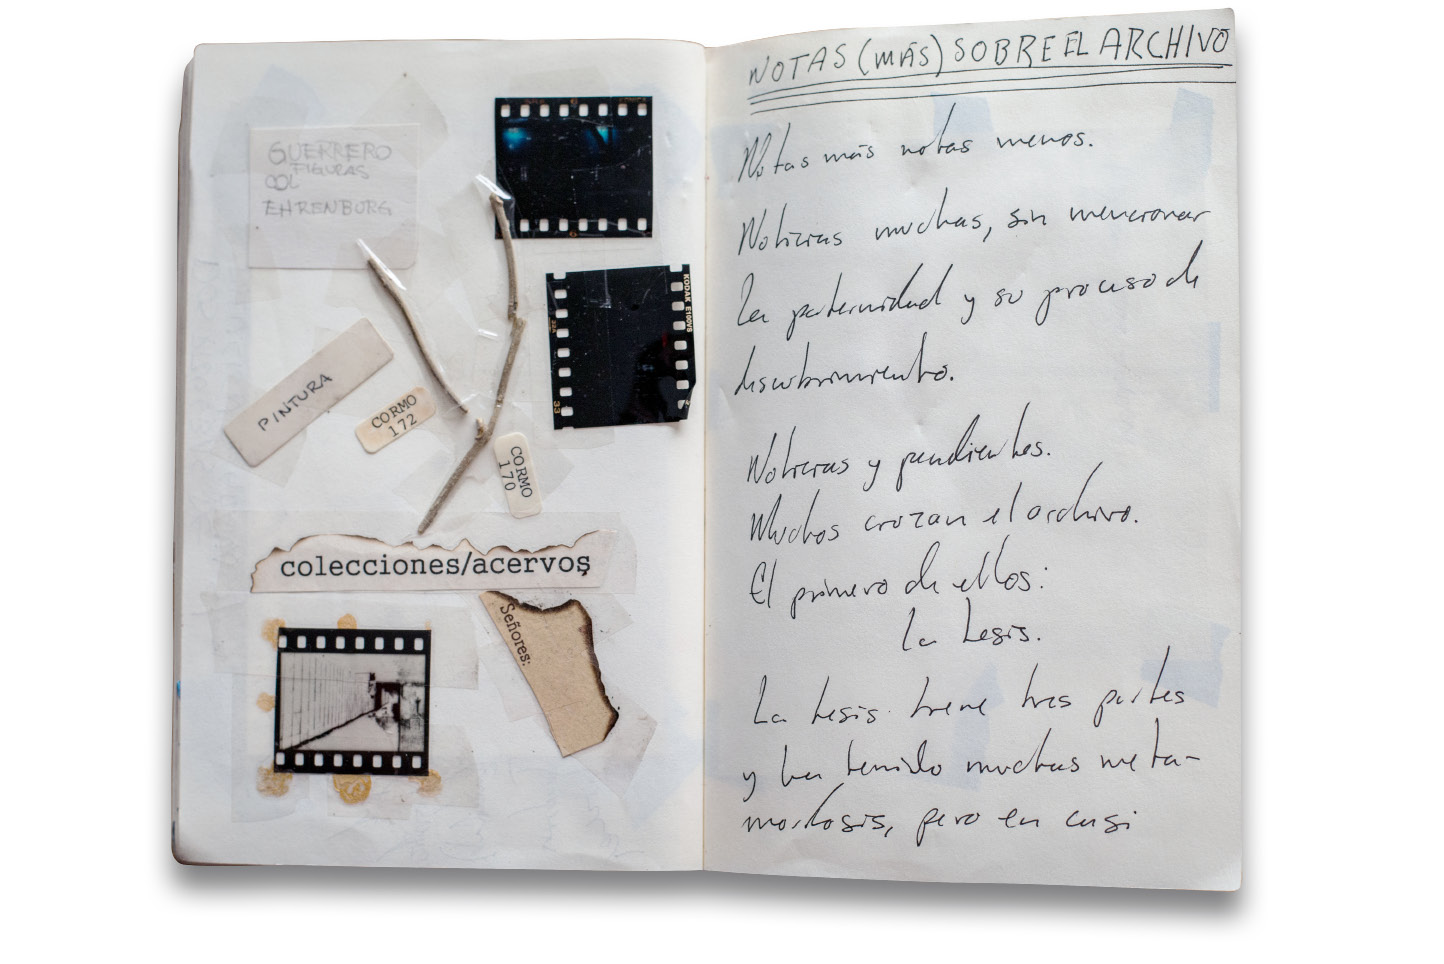 GUERRERO
FIGURAS
COL
EHRENBURG
KODAK E100VS
33
PINTURA
CORMO
172
CORMO
170
colecciones/acervos
Señores:
NOTAS (MÁS) SOBRE EL ARCHIVO
Notas más notas menos.
Noticias muchas, sin mencionar
La paternidad y su proceso de
descubrimiento.
Noticias y pendientes.
Muchos cruzan el archivo.
El primero de ellos:
la tesis.
La tesis tiene tres partes
y ha tenido muchas meta-
morfosis, pero en casi